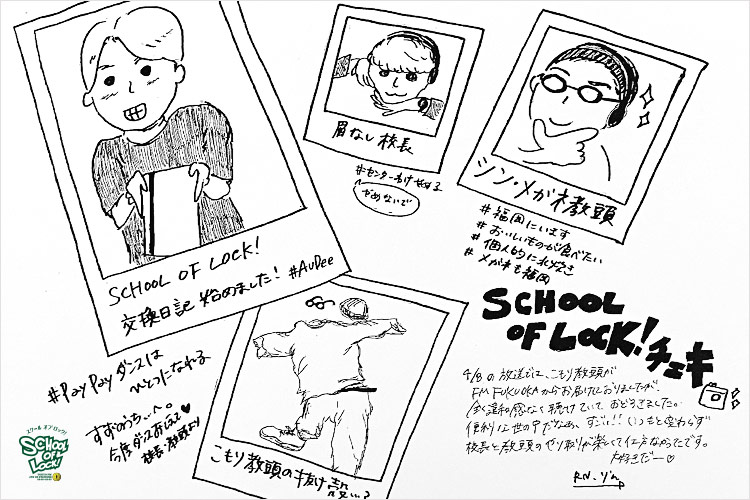 SCHOOL OF LOCK!
交換日記 始めました! #AuDee
#PayPayダンスは
ひとつになれる
すずのうち…へ。
今度ダンスおしえて♥
校長・教頭より
眉なし校長
#センターわけやめる
やめないで
シン・メガネ教頭
#福岡にいます
#おいしいものが食べたい
#個人的に水炊き
#メガネも福岡
こもり教頭の抜け殻…?
SCHOOL
OF LOCK!
チェキ
4/8の放送では、こもり教頭が
FM FUKUOKAからお届けしておりましたが、
全く違和感なく聴けていておどろきました。
便利な世の中だなぁ、すごい!! いつもと変わらず
校長と教頭のやり取りが楽しくて仕方なかったです。
大好きだー♡
RN.
スクール オブ ロック!
SCHOOL
OF
LOCK!